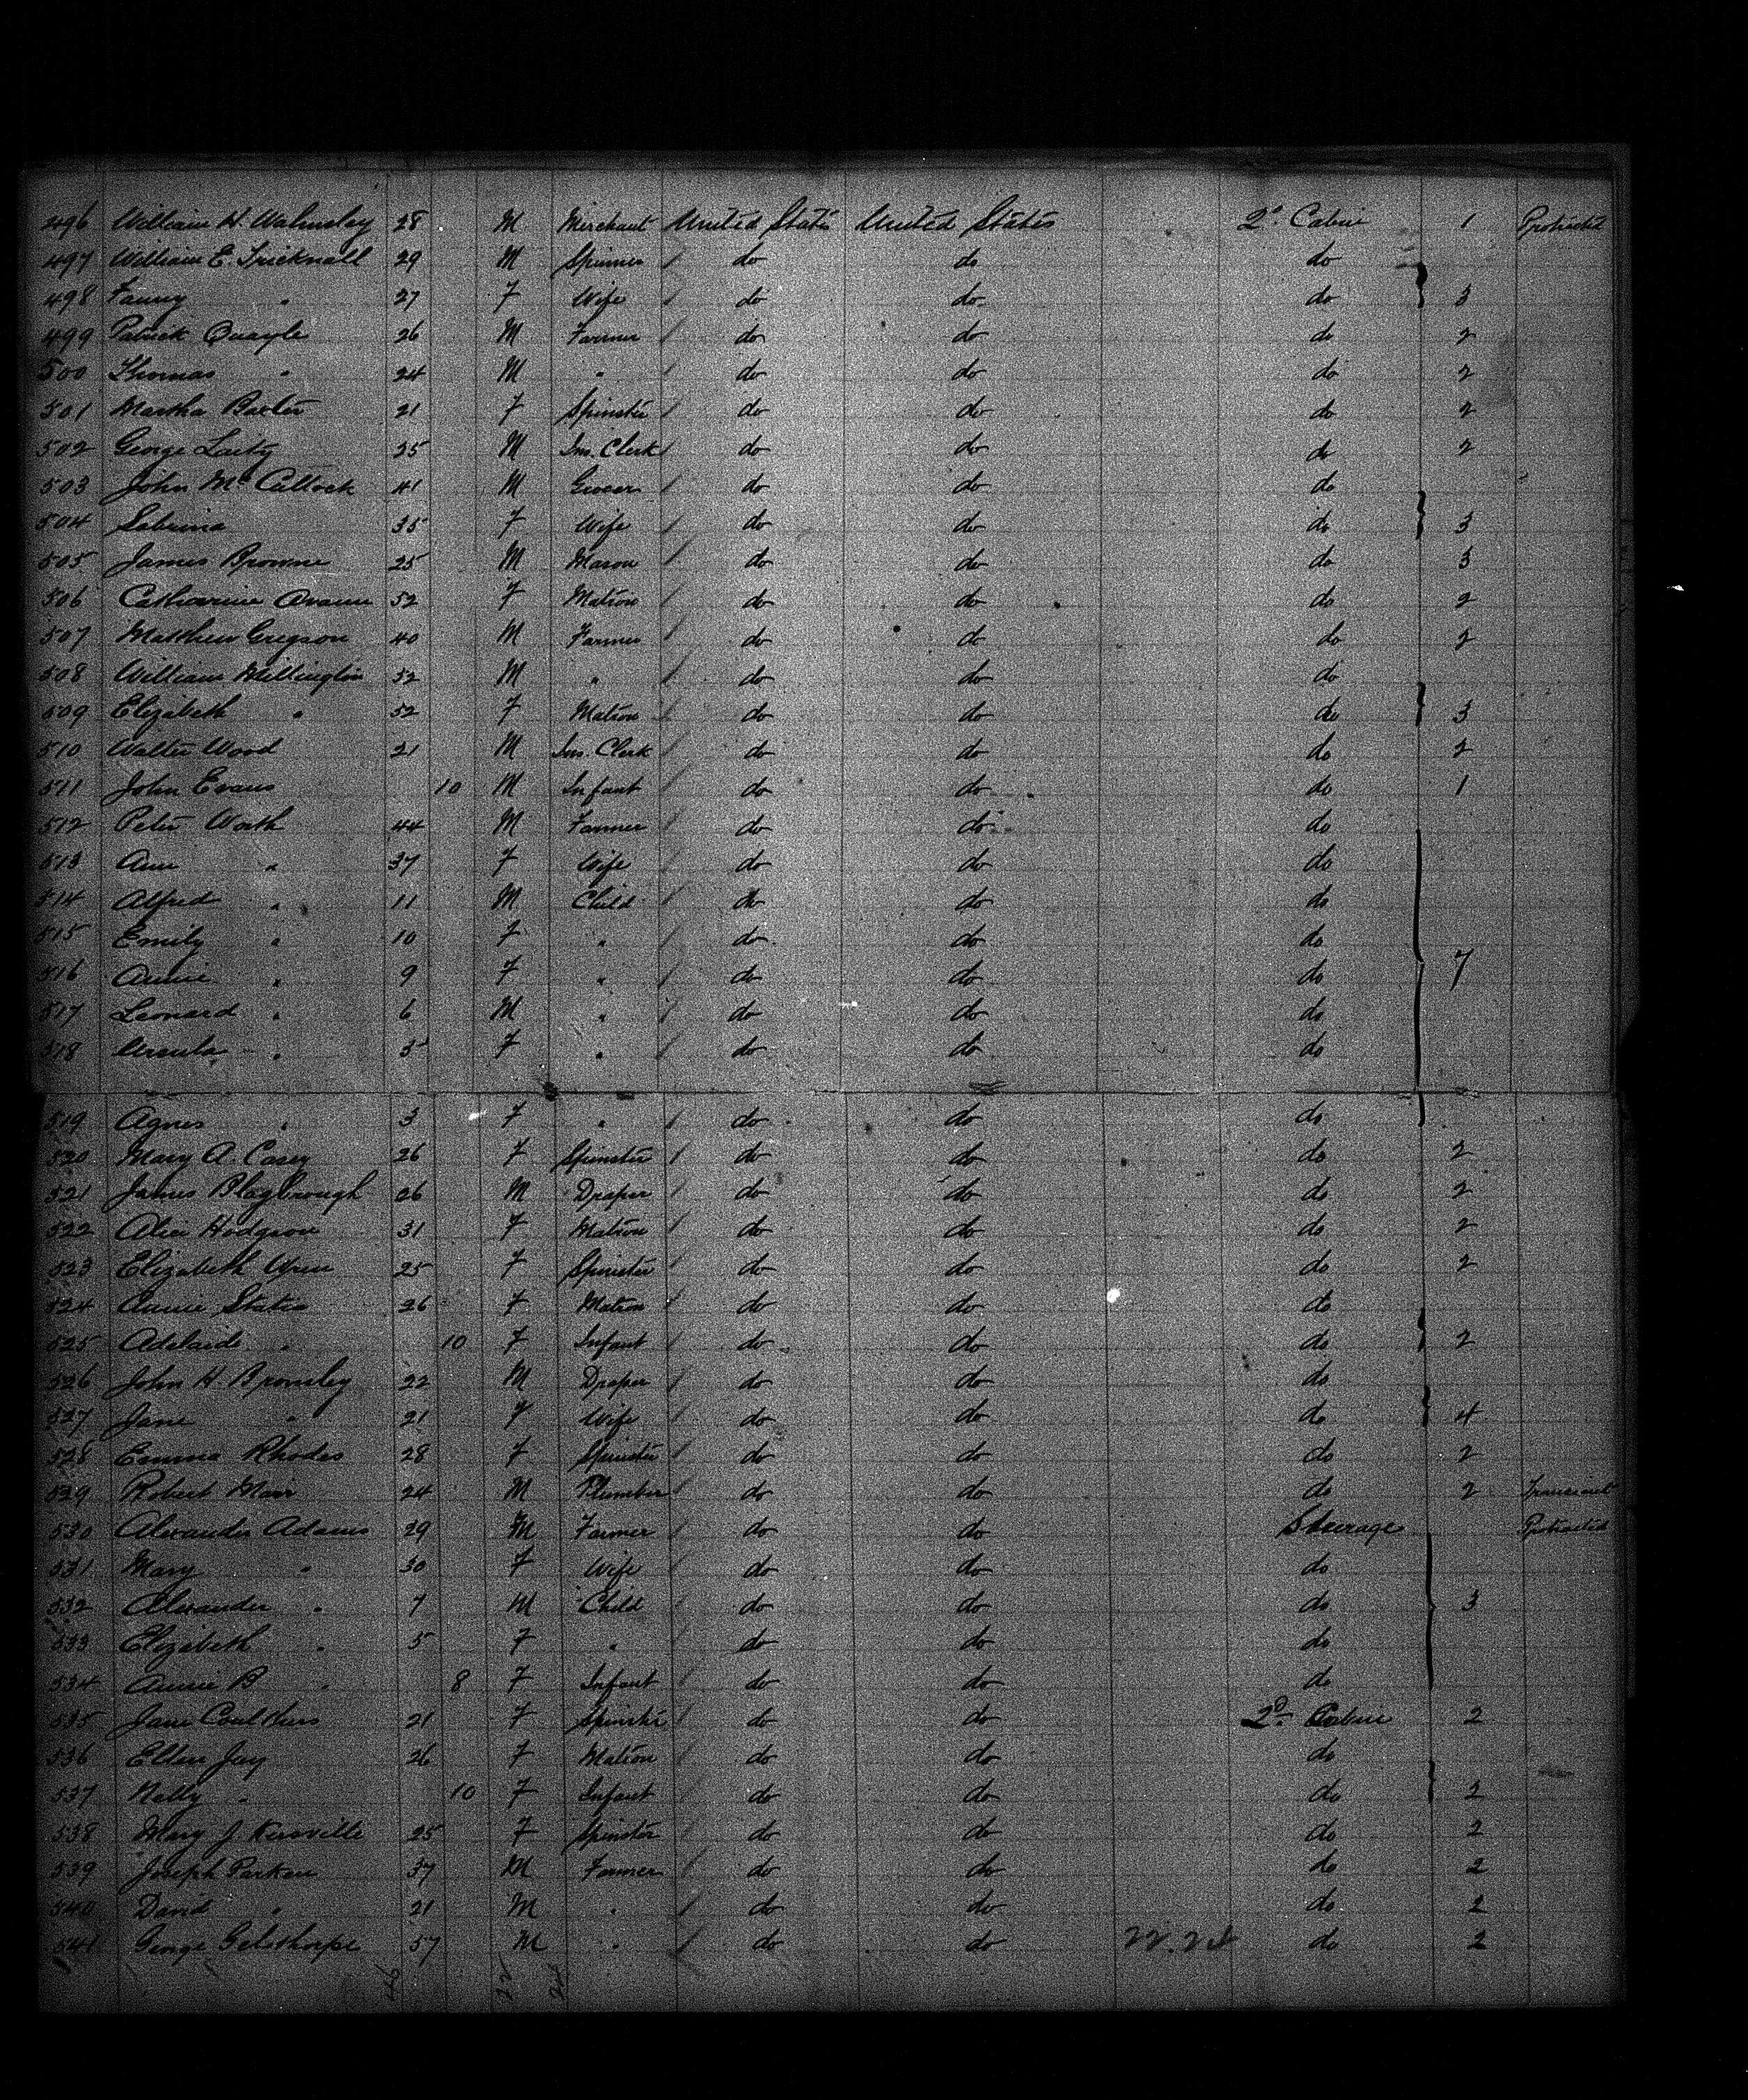 496 William H. Walmsley 28 M Merchant United States United States 2d Cabin 1 Protracted
497 William E. Tricknall 29 M Spinner do do do
498 Fanny " 27 F Wife do do do 3
499 Patrick Quayle 26 M Farmer do do do 2
500 Thomas " 24 M " do do do 2
501 Martha Baxter 21 F Spinster do do do 2
502 George Laity 25 M Ins. Clerk do do do 2
503 John Mc Cullock 41 M Grocer do do do
504 Sabrina 35 F Wife do do do 3
505 James Browne 25 M Mason do do do 3
506 Catharine 52 F Matron do do do 2
507 Matthew Gregson 40 M Farmer do do do 2
508 William Millington 52 M " do do do
509 Elizabeth " 52 F Matron do do do 3
510 Walter Wood 21 M Ins. Clerk do do do 2
511 John Evans 10 M Infant do do do 1
512 Peter Worth 44 M Farmer do do do
513 Ann " 37 F Wife do do do
514 Alfred " 11 M Child do do do
515 Emily " 10 F " do do do
516 Annie " 9 F " do do do 7
517 Leonard " 6 M " do do do
518 Ursula " 5 F " do do do
519 Agnes " 3 F " do do do
520 Mary A. Casey 26 F Spinster do do do 2
521 James Blagbrough 26 M Draper do do do 2
522 Alice Hodgson 31 F Matron do do do 2
523 Elizabeth Wren 25 F Spinster do do do 2
524 Annie 26 F Matron do do do
525 Adelaide " 10 F Infant do do do 2
526 John H. Bromley 22 M Draper do do do
527 Jane " 21 F Wife do do do 4
528 Emma Rhodes 28 F Spinster do do do 2
529 Robert Mair 24 M Plumber do do do 2 Transient
530 Alexander Adams 29 M Farmer do do Steerage Protracted
531 Mary " 30 F Wife do do do
532 Alexander " 7 M Child do do do 3
533 Elizabeth " 5 F " do do do
534 Annie B " 8 F Infant do do do
535 Jane 21 F Spinster do do 2d Cabin 2
536 Ellen Jay 26 F Matron do do do
537 Nelly " 10 F Infant do do do 2
538 Mary J. 25 F Spinster do do do 2
539 Joseph Parken 37 M Farmer do do do 2
540 David " 21 M " do do do 2
541 George Gelsthorpe 57 M " do do do 2